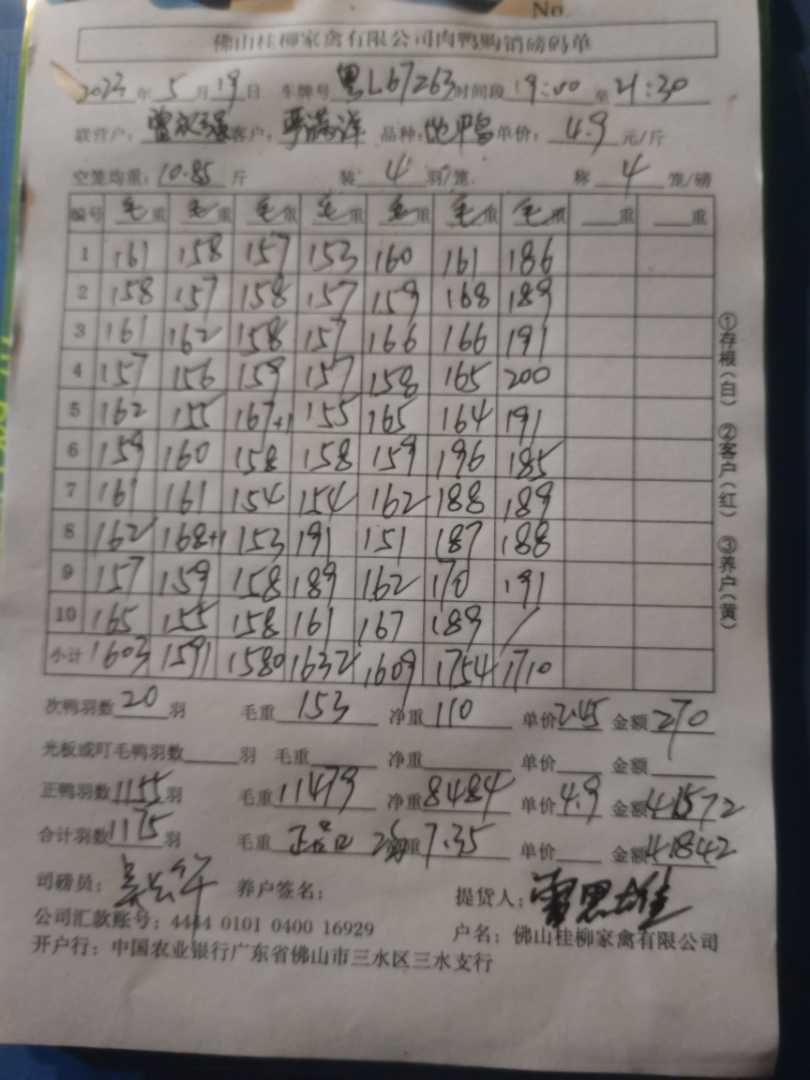 No.
佛山桂柳家禽有限公司肉鸭购销磅码单
2023年5月19日 车牌号 黑L67263 时间段 19:00 至 21:30
联营户: 客户: 品种: 单价: 4.9 元/斤
空笼均重: 10.85 斤 装 4 羽/笼 称 4 笼/磅
编号 毛重 毛重 毛重 毛重 毛重 毛重 毛重 重 重
1 161 158 157 153 160 161 186
2 158 157 158 157 159 168 189
3 161 162 158 157 166 166 191
4 157 156 159 157 158 165 200
5 162 155 167+1 155 165 164 191
6 159 160 158 158 159 196 185
7 161 161 154 154 162 188 189
8 162 168+1 153 191 151 187 188
9 157 159 158 189 162 170 191
10 165 155 158 161 167 189 /
小计 1603 1591 1580 1632 1609 1754 1710
次鸭羽数 20 羽 毛重 153 净重 110 单价 2.45 金额 270
光板或叮毛鸭羽数 羽 毛重 净重 单价 金额
正鸭羽数 1155 羽 毛重 11479 净重 8484 单价 4.9 金额 41572
合计羽数 1175 羽 毛重 重 7.35 单价 金额 41842
司磅员: 养户签名: 提货人:
公司汇款账号: 4444 0101 0400 16929 户名: 佛山桂柳家禽有限公司
开户行: 中国农业银行广东省佛山市三水区三水支行
①存根(白) ②客户(红) ③养户(黄)